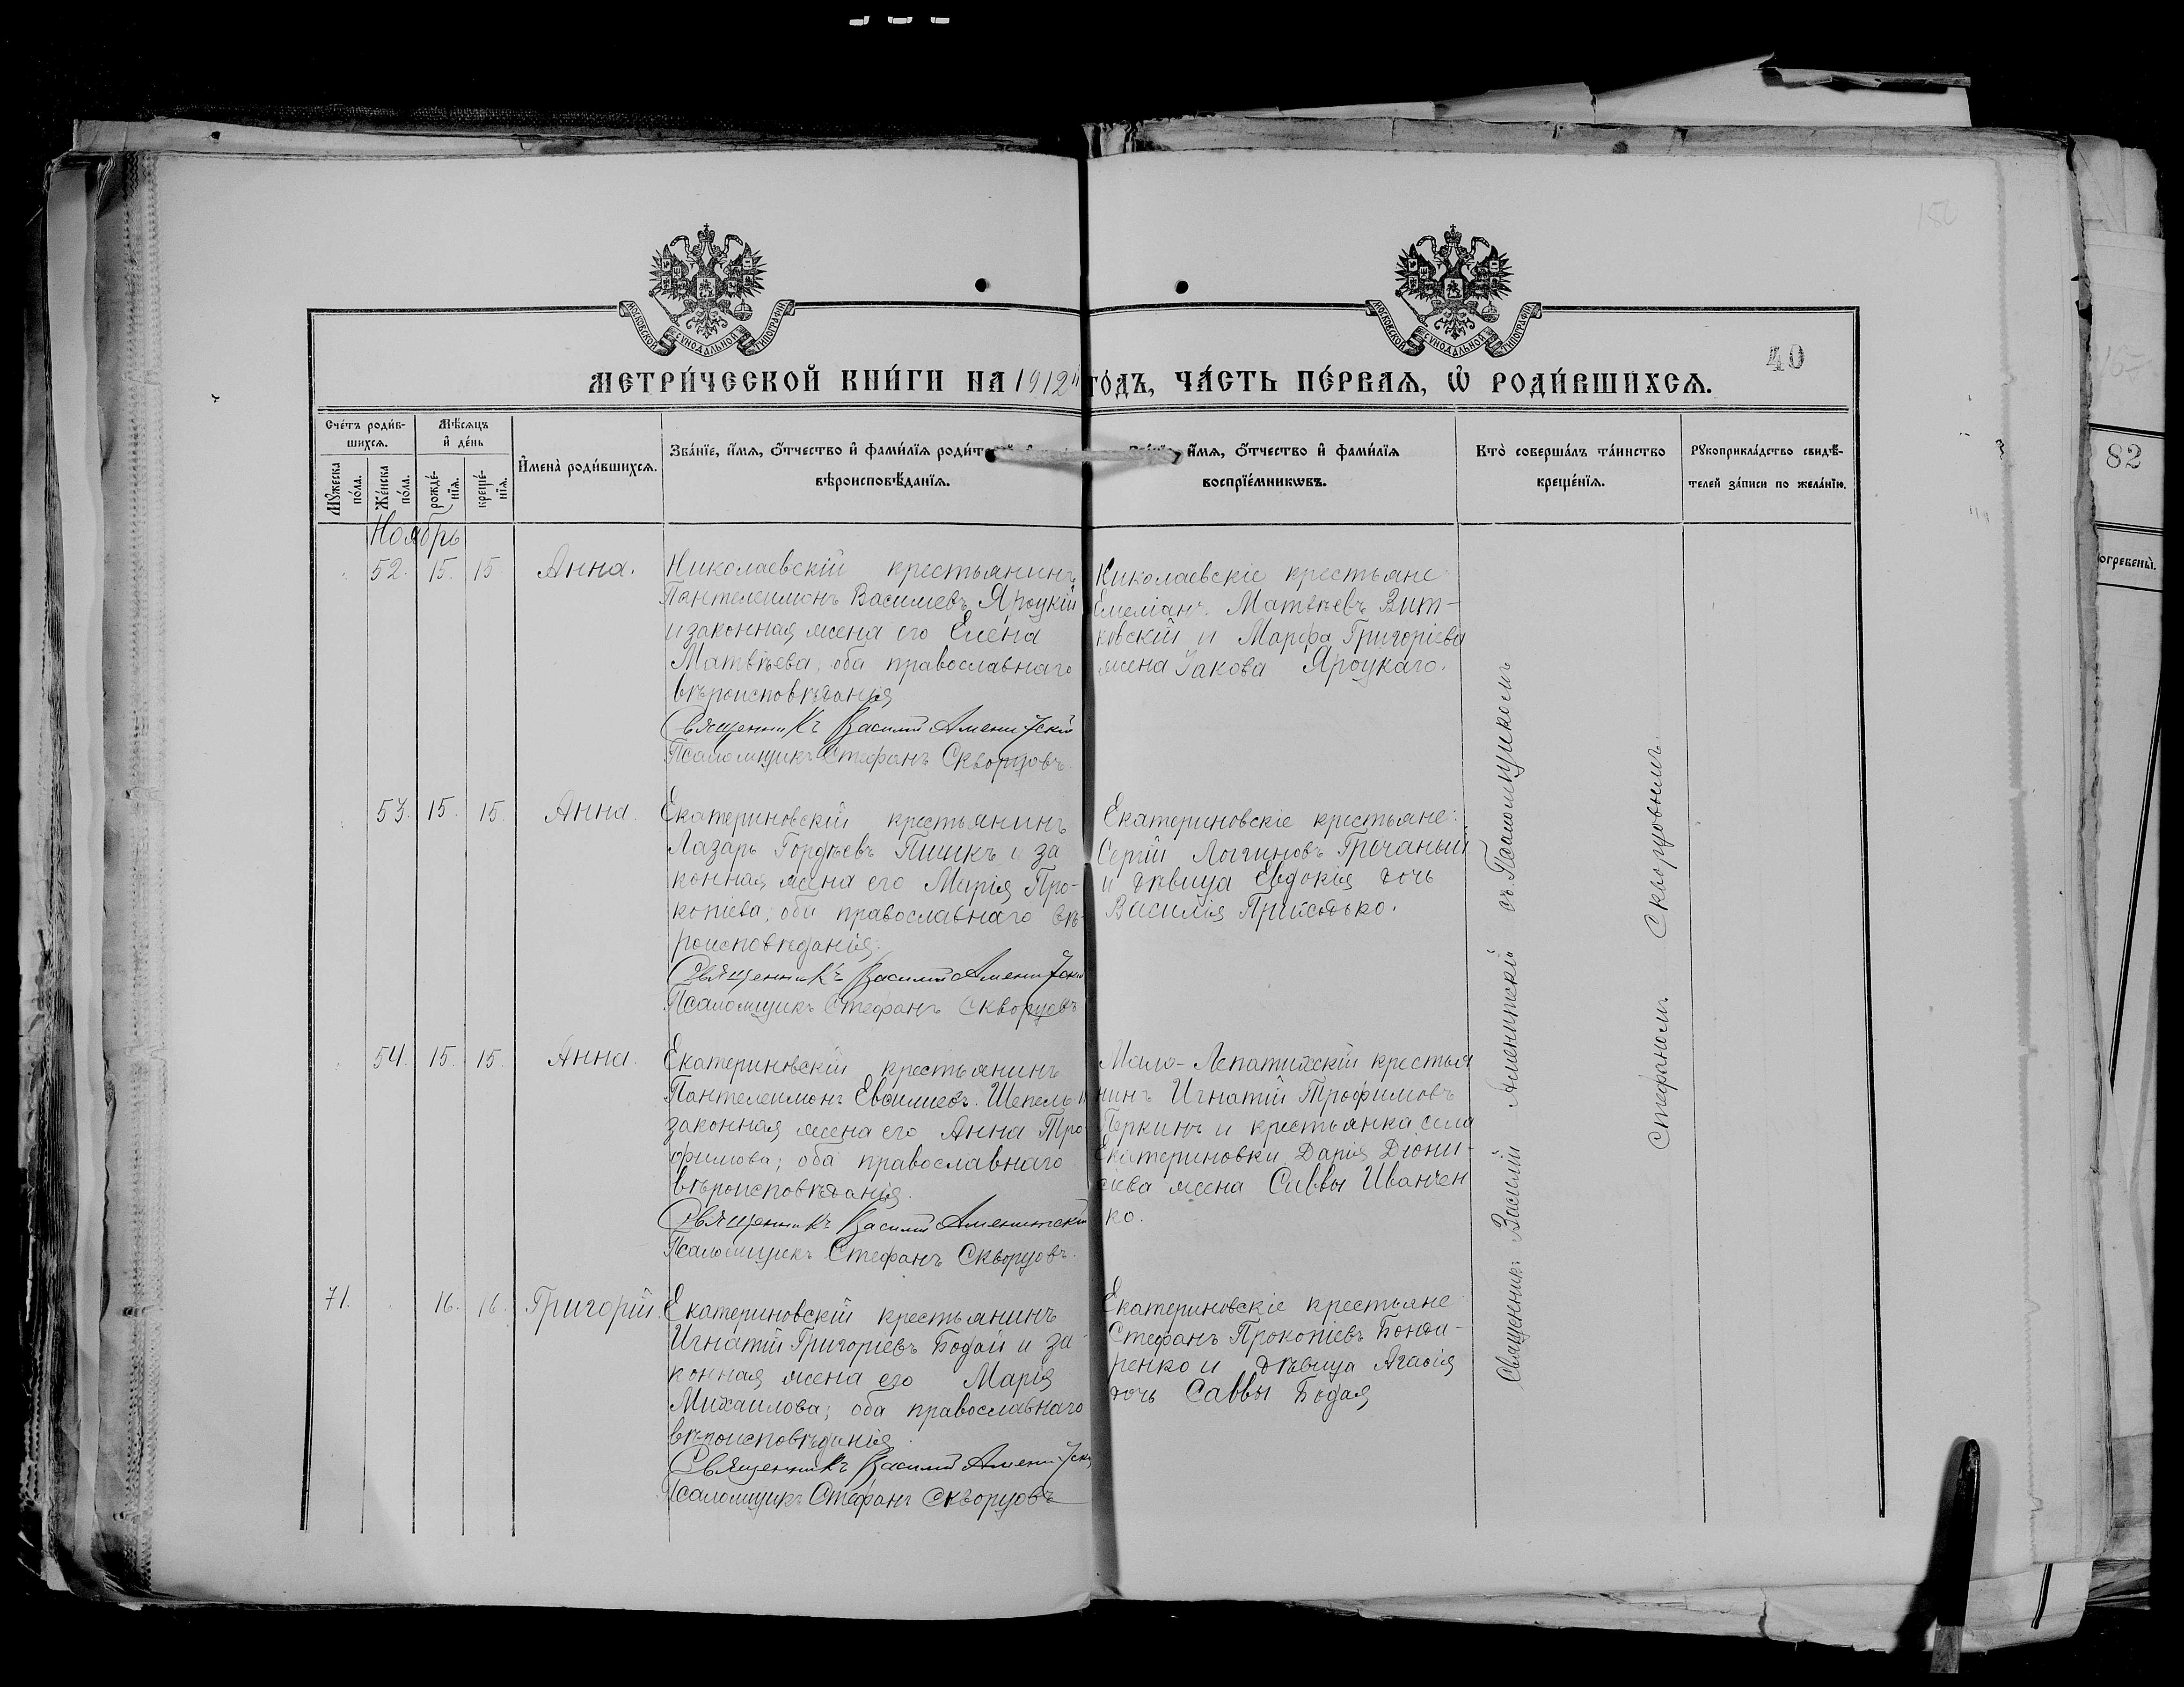 МОСКОВСКОЙ СѴНОДАЛЬНОЙ ТИПОГРАФІИ
МОСКОВСКОЙ СѴНОДАЛЬНОЙ ТИПОГРАФІИ
40
МЕТРИ́ЧЕСКОЙ КНИ́ГИ НА 1912 ГО́ДЪ, ЧА́СТЬ ПЕ́РВАѦ, Ѡ҆ РОДИ́ВШИХСѦ.
Сче́тъ роди́в-
шихсѧ.
Мꙋ́жеска по́ла.
Же́нска по́ла.
Мѣ́сѧцъ
и҆ де́нь
рожде́-
нїѧ.
креще́-
нїѧ.
И҆мена̀ роди́вшихсѧ.
Зва́нїе, и҆́мѧ, ѻ҆́тчество и҆ фами́лїѧ
вѣроисповѣ́данїѧ.
и҆́мѧ, ѻ҆́тчество и҆ фами́лїѧ
воспрїе́мникѡвъ.
Кто̀ соверша́лъ та́инство
креще́нїѧ.
Рꙋкоприкла́дство свидѣ́-
телей за́писи по жела́нїю.
Ноябрь
52. 15. 15. Анна.
Николаевскій крестьянинъ
Пантелеимонъ Васильевъ Яроцкій
и законная жена его Елена
Матвѣева, оба православнаго
вѣроисповѣданія
Священникъ Василій Аменитскій
Псаломщикъ Стефанъ Скворцовъ
Николаевскіе крестьяне
Емеліанъ Матвѣевъ Вит-
ковскій и Марфа Григоріева
жена Іакова Яроцкаго.
53. 15. 15. Анна.
Екатериновскій крестьянинъ
Лазарь Гордѣевъ и за
конная жена его Марія Про-
копіева, оба православнаго вѣ-
роисповѣданія.
Священникъ Василій Аменитскій
Псаломщикъ Стефанъ Скворцовъ
Екатериновскіе крестьяне:
Сергій Логгиновъ Гречаный
и дѣвица Евдокія дочь
Василія Присядько.
54. 15. 15. Анна.
Екатериновскій крестьянинъ
Пантелеимонъ Шепель и
законная жена его Анна Тро
фимова; оба православнаго
вѣроисповѣданія.
Священникъ Василій Аменитскій
Псаломщикъ Стефанъ Скворцовъ.
Мало-Лепатихскій крестья
нинъ Игнатій Трофимовъ
Перкинъ и крестьянка села
Екатериновки Дарія Діони-
сіева жена Саввы Иванчен
ко.
71. 16. 16. Григорій.
Екатериновскій крестьянинъ
Игнатій Григоріевъ Бодай и за
конная жена его Марія
Михаилова; оба православнаго
вѣроисповѣданія.
Священникъ Василій Аменитскій
Псаломщикъ Стефанъ Скворцовъ
Екатериновскіе крестьяне
Стефанъ Прокопіевъ Бонда-
ренко и дѣвица Агафія
дочь Саввы Бодая
Священникъ Василій Аменитскій съ Псаломщикомъ
Стефаномъ Скворцовымъ.
82